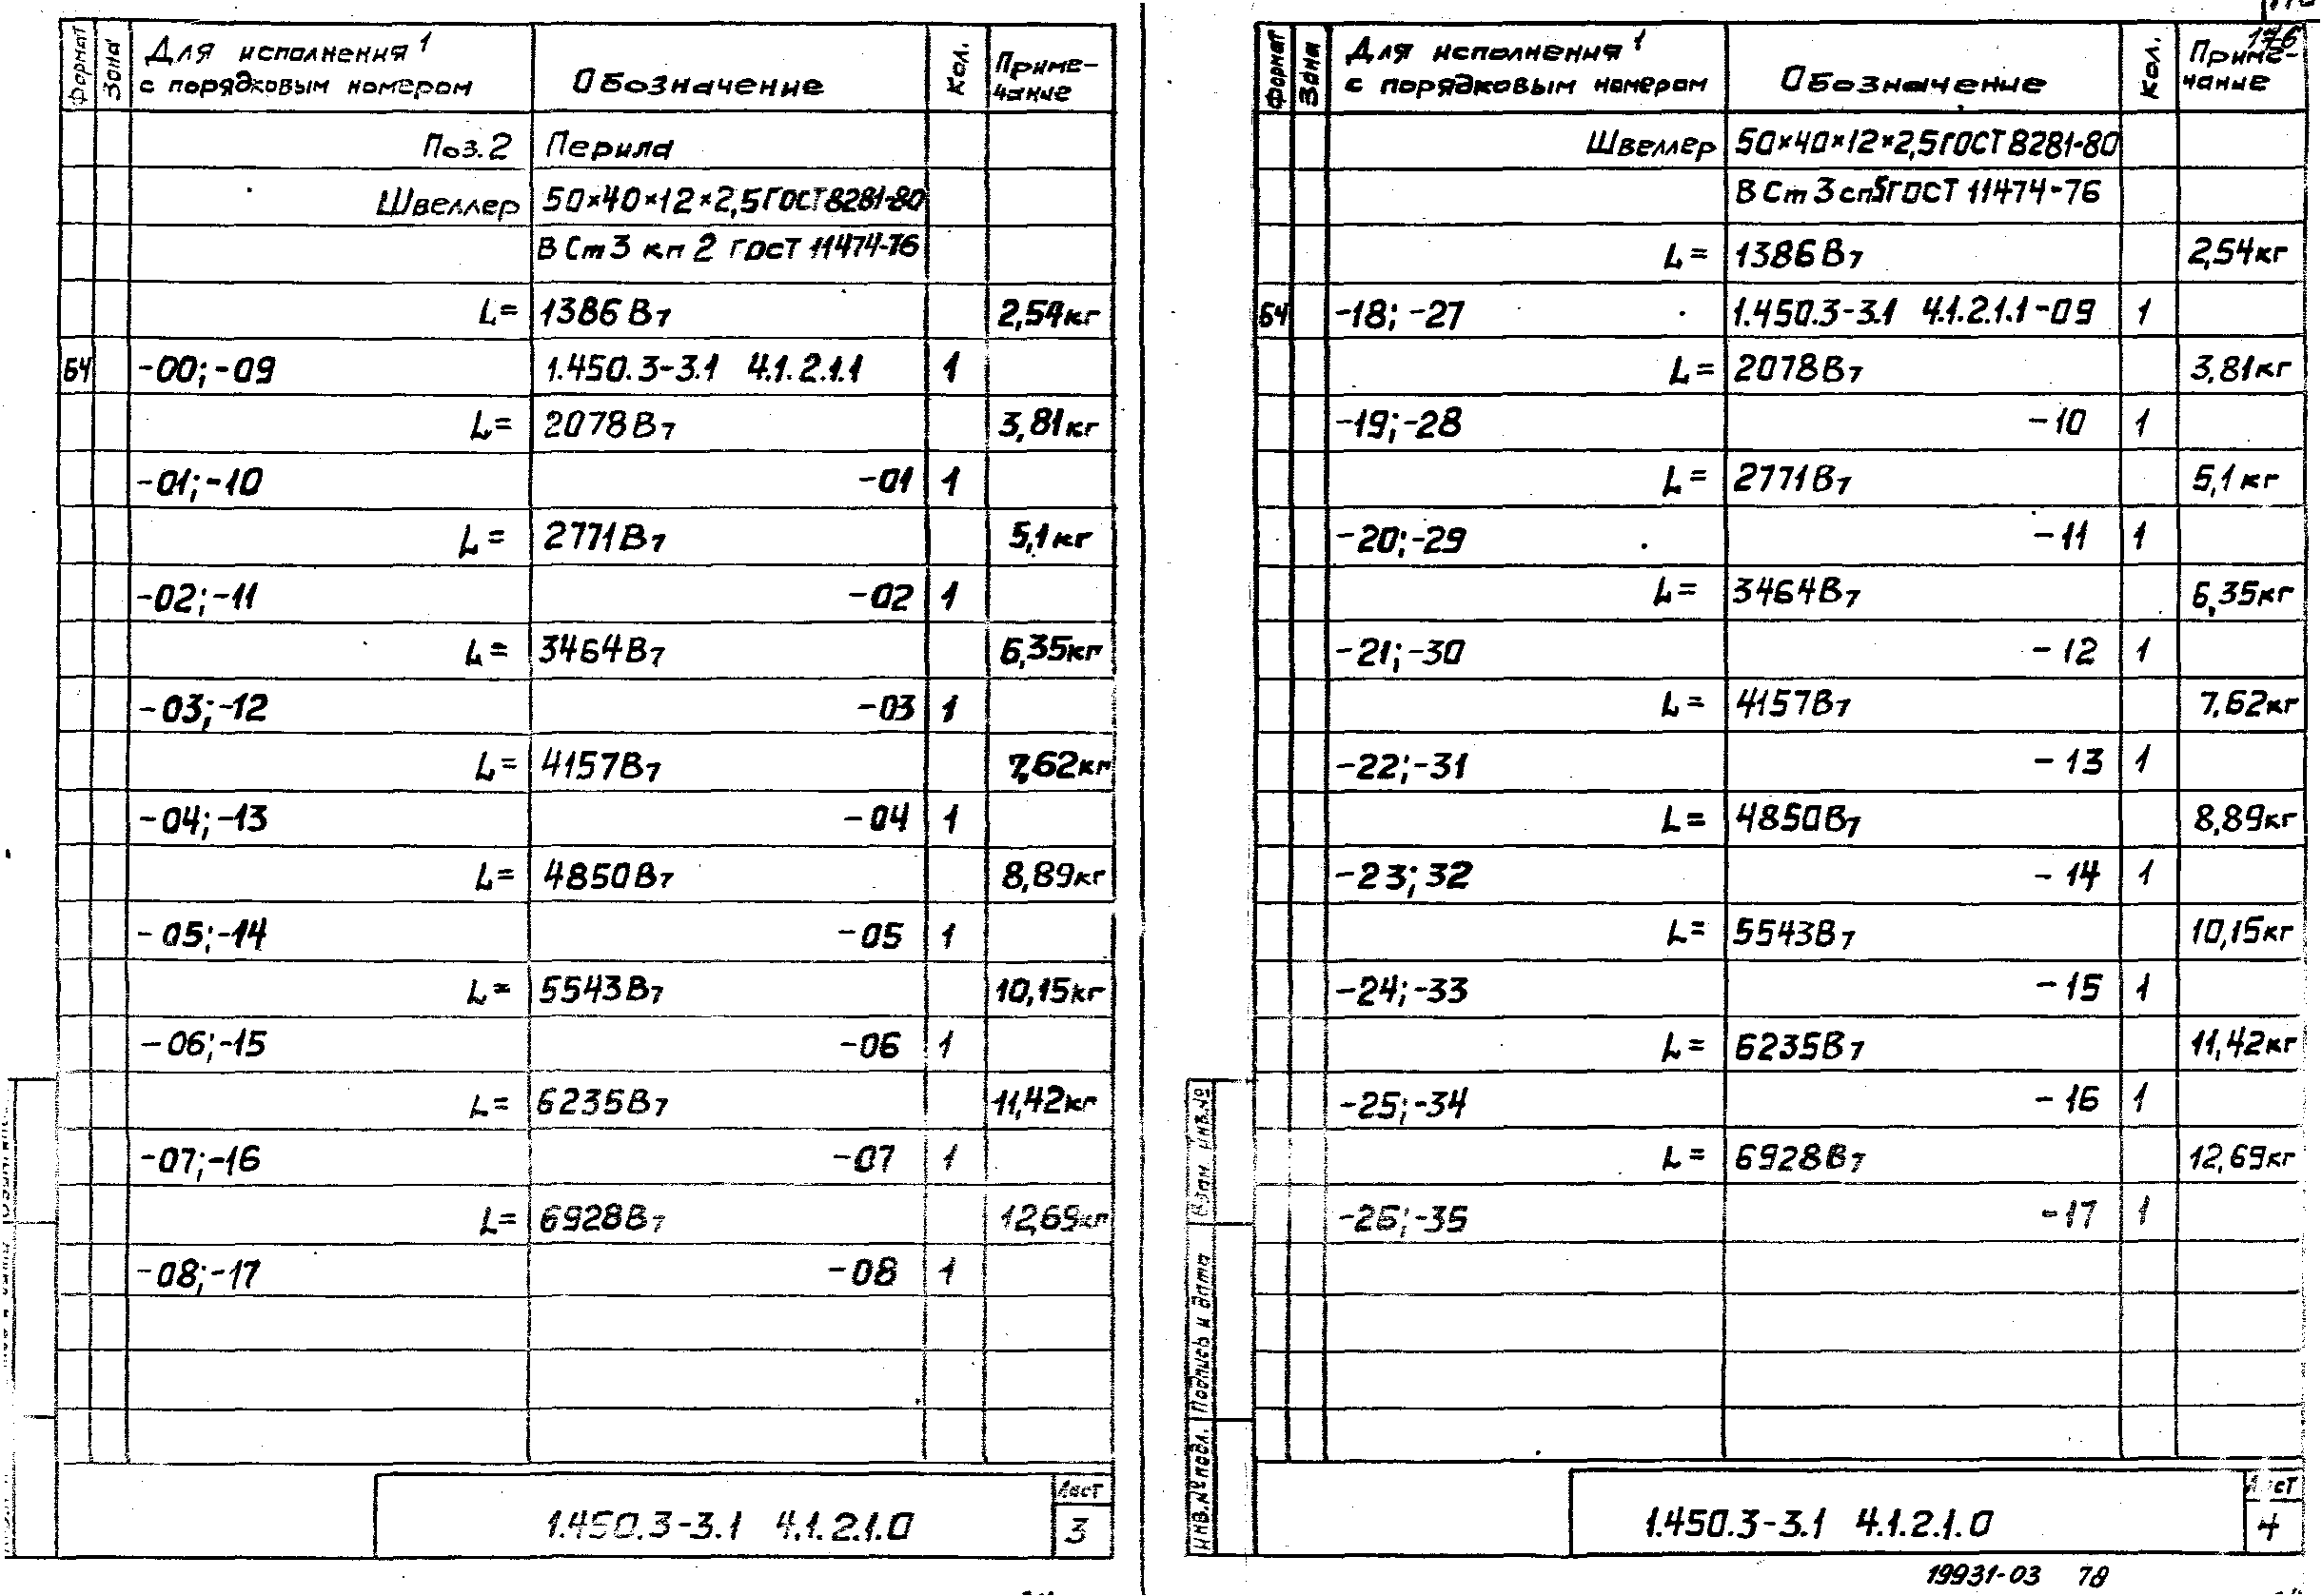 Формат Зона Для исполнения 1 с порядковым номером Обозначение Кол. Примечание
Поз. 2 Перила
Швеллер 50×40×12×2,5 ГОСТ 8281-80
В Ст 3 кп 2 ГОСТ 11474-76
L= 1386 В7 2,54кг
БЧ -00; -09 1.450.3-3.1 4.1.2.1.1 1
L= 2078В7 3,81кг
-01; -10 -01 1
L= 2771В7 5,1кг
-02; -11 -02 1
L= 3464В7 6,35кг
-03; -12 -03 1
L= 4157В7 7,62кг
-04; -13 -04 1
L= 4850В7 8,89кг
-05; -14 -05 1
L= 5543В7 10,15кг
-06; -15 -06 1
L= 6235В7 11,42кг
-07; -16 -07 1
L= 6928В7 12,69кг
-08; -17 -08 1
1.450.3-3.1 4.1.2.1.0
Лист
3
176
Формат Зона Для исполнения 1 с порядковым номером Обозначение Кол. Примечание
Швеллер 50×40×12×2,5 ГОСТ 8281-80
В Ст 3 сп5 ГОСТ 11474-76
L= 1386 В7 2,54кг
БЧ -18; -27 1.450.3-3.1 4.1.2.1.1-09 1
L= 2078В7 3,81кг
-19; -28 -10 1
L= 2771В7 5,1кг
-20; -29 -11 1
L= 3464В7 6,35кг
-21; -30 -12 1
L= 4157В7 7,62кг
-22; -31 -13 1
L= 4850В7 8,89кг
-23; 32 -14 1
L= 5543В7 10,15кг
-24; -33 -15 1
L= 6235В7 11,42кг
-25; -34 -16 1
L= 6928В7 12,69кг
-26; -35 -17 1
Инв.№ подл. Подпись и дата Взам. инв.№
1.450.3-3.1 4.1.2.1.0
Лист
4
19931-03 78